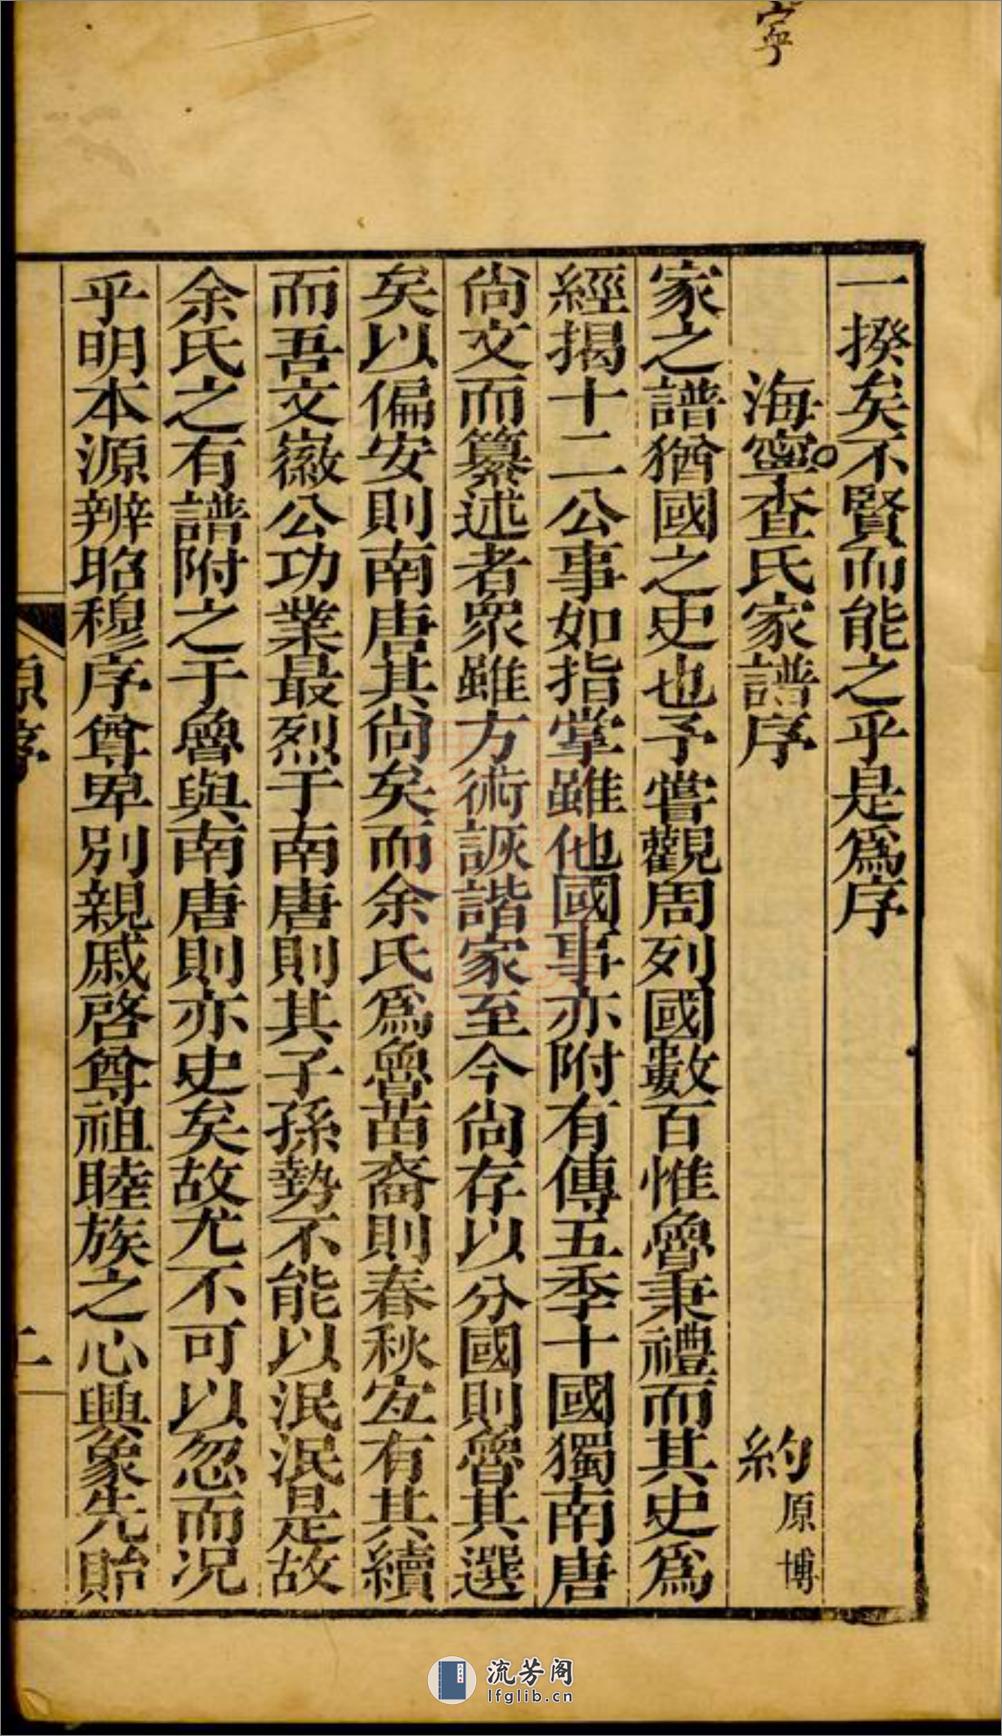 寧
一揆矣不賢而能之乎是爲序
海寧查氏家譜序 約原博
家之譜猶國之史也予嘗觀周列國數百惟魯秉禮而其史爲
經揭十二公事如指掌雖他國事亦附有傳五季十國獨南唐
尙文而纂述者衆雖方術詼諧家至今尙存以分國則魯其選
矣以偏安則南唐其尙矣而余氏爲魯苗裔則春秋宐有其續
而吾文徽公功業最烈于南唐則其子孫勢不能以泯泯是故
余氏之有譜附之于魯與南唐則亦史矣故尤不可以忽而况
乎明本源辨昭穆序尊卑別親戚啓尊祖睦族之心興象先貽
原序
二
流芳阁
lfglib.cn